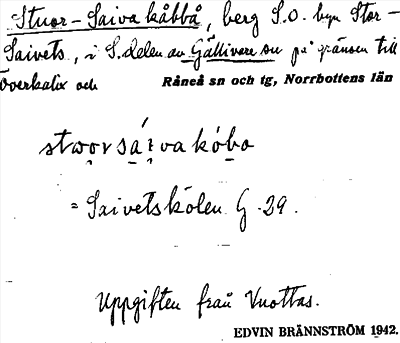 Stuor-Saiva kåbbå, berg S.O. byn Stor-
Saivets, i S. delen av Gällivare sn på gränsen till
Överkalix och Råneå sn och tg, Norrbottens län
stworsáivakóbo
= Saivetskölen G. 29.
Uppgiften från Vuottas.
EDVIN BRÄNNSTRÖM 1942.